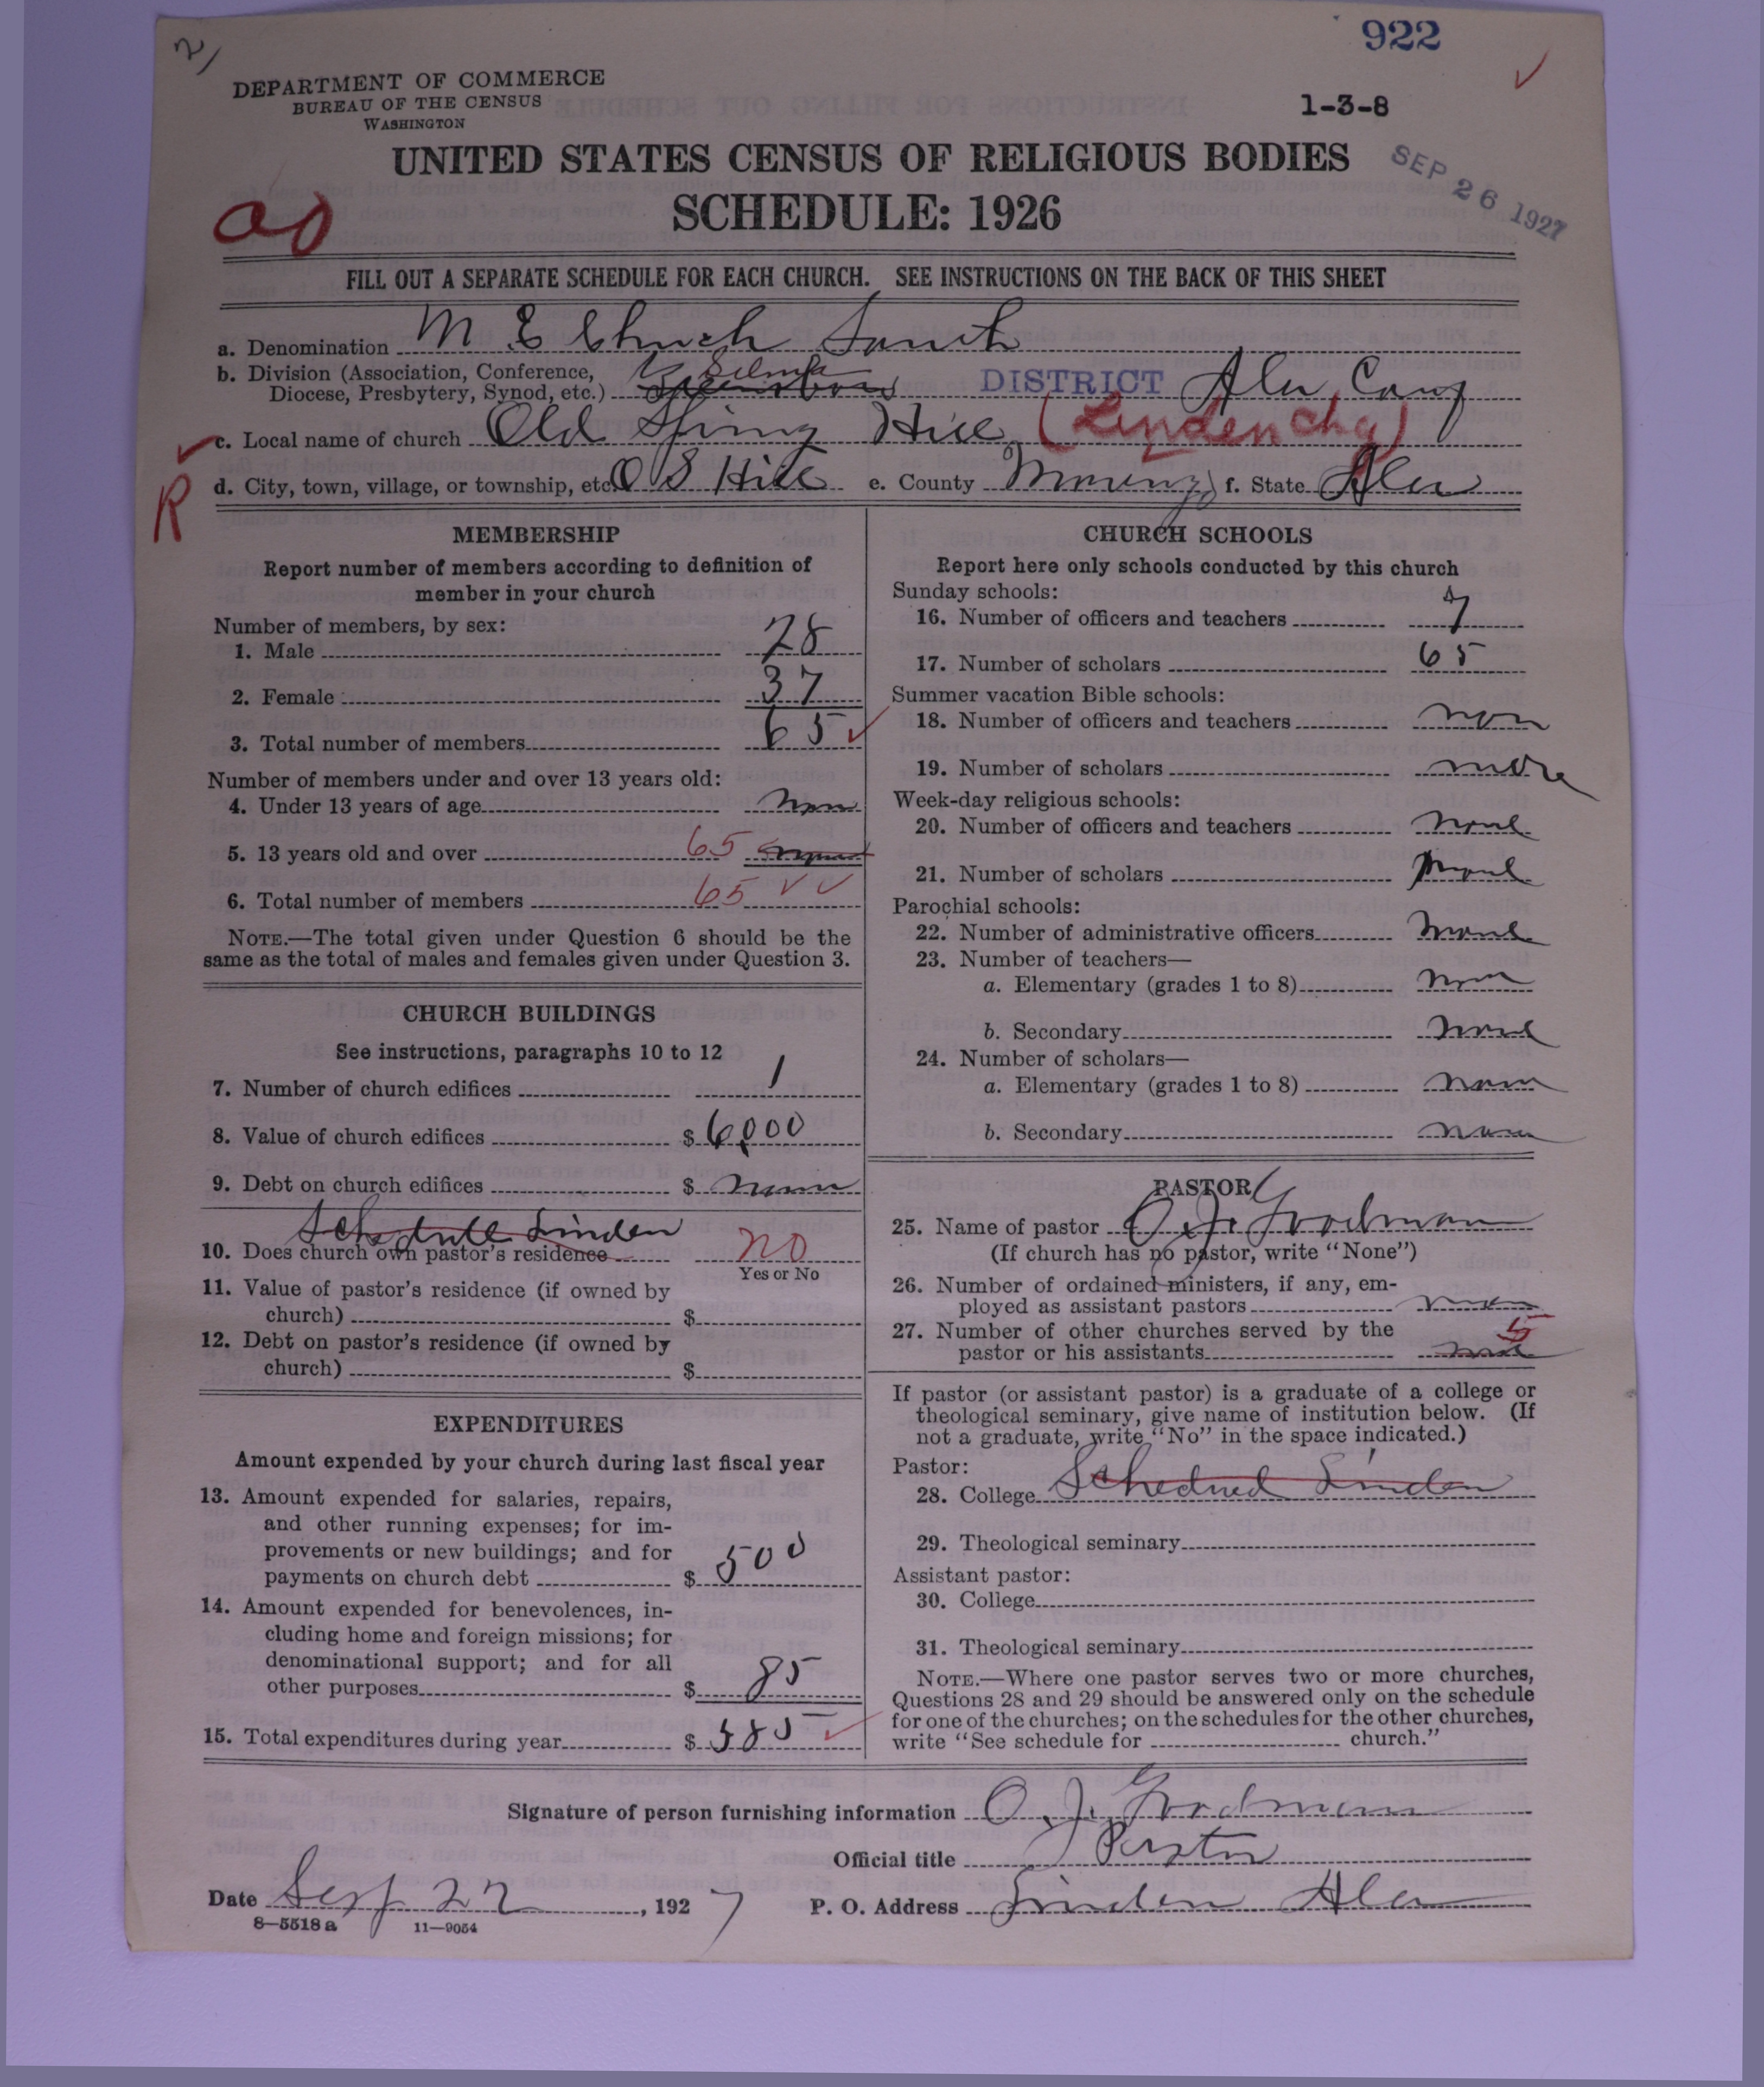 2/
922
DEPARTMENT OF COMMERCE
BUREAU OF THE CENSUS
WASHINGTON
1-3-8
UNITED STATES CENSUS OF RELIGIOUS BODIES
SEP 26 1927
SCHEDULE: 1926
FILL OUT A SEPARATE SCHEDULE FOR EACH CHURCH. SEE INSTRUCTIONS ON THE BACK OF THIS SHEET
a. Denomination M E Church South
b. Division (Association, Conference, Selma
Diocese, Presbytery, Synod, etc.) Greensboro DISTRICT Ala Conf
c. Local name of church Old Spring Hill (Linden Chg)
d. City, town, village, or township, etc. O S Hill e. County f. State Ala
R
MEMBERSHIP
Report number of members according to definition of
member in your church
Number of members, by sex:
1. Male 28
2. Female 37
3. Total number of members 65
Number of members under and over 13 years old:
4. Under 13 years of age non
5. 13 years old and over 65
6. Total number of members 65
NOTE.—The total given under Question 6 should be the
same as the total of males and females given under Question 3.
CHURCH BUILDINGS
See instructions, paragraphs 10 to 12
7. Number of church edifices 1
8. Value of church edifices $ 6000
9. Debt on church edifices $ none
Schedule Linden
10. Does church own pastor's residence no
Yes or No
11. Value of pastor's residence (if owned by
church) $
12. Debt on pastor's residence (if owned by
church) $
EXPENDITURES
Amount expended by your church during last fiscal year
13. Amount expended for salaries, repairs,
and other running expenses; for im-
provements or new buildings; and for
payments on church debt $ 500
14. Amount expended for benevolences, in-
cluding home and foreign missions; for
denominational support; and for all
other purposes $ 85
15. Total expenditures during year $ 585
CHURCH SCHOOLS
Report here only schools conducted by this church
Sunday schools:
16. Number of officers and teachers 7
17. Number of scholars 65
Summer vacation Bible schools:
18. Number of officers and teachers non
19. Number of scholars none
Week-day religious schools:
20. Number of officers and teachers none
21. Number of scholars none
Parochial schools:
22. Number of administrative officers none
23. Number of teachers—
a. Elementary (grades 1 to 8) none
b. Secondary none
24. Number of scholars—
a. Elementary (grades 1 to 8) none
b. Secondary none
PASTOR
25. Name of pastor O. J. Goodman
(If church has no pastor, write "None")
26. Number of ordained ministers, if any, em-
ployed as assistant pastors none
27. Number of other churches served by the 5
pastor or his assistants none
If pastor (or assistant pastor) is a graduate of a college or
theological seminary, give name of institution below. (If
not a graduate, write "No" in the space indicated.)
Pastor:
28. College Linden
29. Theological seminary
Assistant pastor:
30. College
31. Theological seminary
NOTE.—Where one pastor serves two or more churches,
Questions 28 and 29 should be answered only on the schedule
for one of the churches; on the schedules for the other churches,
write "See schedule for church."
Signature of person furnishing information O. J. Goodman
Official title Pastor
Date Sept 22, 1927 P. O. Address Linden Ala
8—5518 a 11—9054